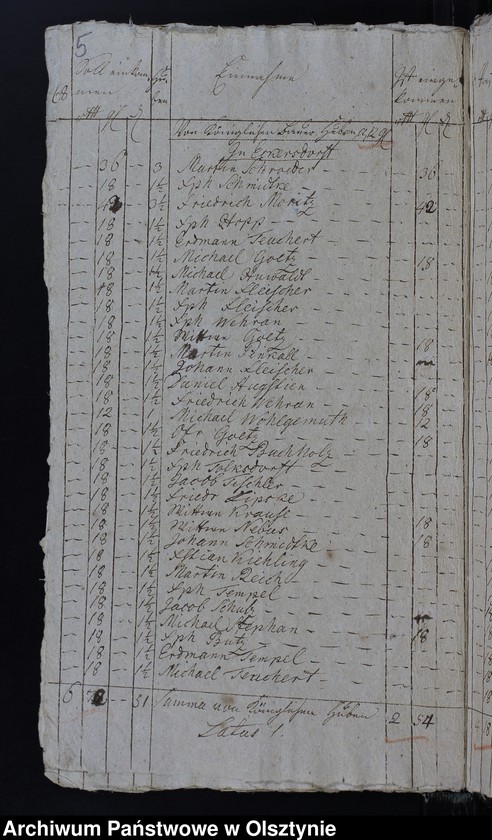 5
Soll einkom Hu Einnahme Ist eingek
68 men ben kommen
Von Königlichen Bauer Huben
In Eckersdorff
36 3 Martin Schroeder 36
18 1½ Jph Schmidtke
42 3½ Friedrich Moritz 42
18 1½ Jph Hopp
18 1½ Erdmann Teuchert
18 1½ Michael Goetz 18
18 1½ Michael Huwaldt
18 1½ Martin Fleischer
18 1½ Jph Fleischer
18 1½ Jph Wehran
18 1½ Wittwe Goetz 18
18 1½ Martin
18 1½ Johann Fleischer
18 1½ Daniel 18
18 1½ Friedrich Wehran 18
12 1 Michael Wohlgemuth 12
18 1½ Chr Goetz 18
18 1½ Friedrich Buchholz
18 1½ Jph Volksdorff
18 1½ Jacob Tischler
18 1½ Friedr Lipcke
18 1½ Wittwe Krause
18 1½ Wittwe Nebus 18
18 1½ Johann Schmidtke 18
18 1½ Xstian Kichling
18 1½ Martin Reich
18 1½ Jph Tempel
18 1½ Jacob Schulz
18 1½ Michael Stephan
18 1½ Jph Butz 18
18 1½ Erdmann Tempel
18 1½ Michael Teuchert
6 51 Summa von Königlichen Huben 2 54
Latus 1.
Archiwum Państwowe w Olsztynie